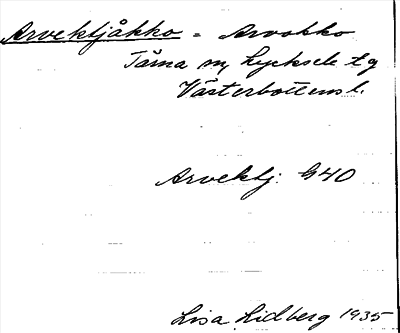 Arvektjåkko = Arvokko
Tärna sn, Lycksele tg
Västerbottens l.
Arvektj. G40
Lisa Lidberg 1935